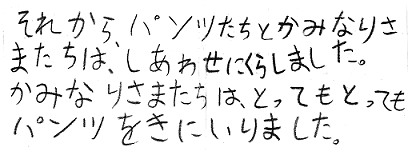 それから、パンツたちとかみなりさ
またちは、しあわせにくらしました。
かみなりさまたちは、とってもとっても
パンツをきにいりました。